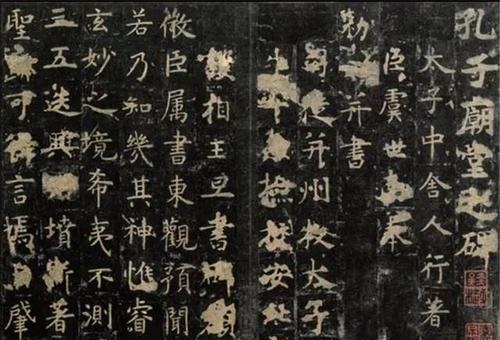 孔子廟堂之碑
太子中舍人行著
臣虞世南奉
勑并書
司徒并州牧太子
牛挍安北
相王旦書碑額
微臣属書東觀預聞
若乃知幾其神惟睿
玄妙之境希夷不測
三五迭興墳斯著
聖可得言焉肇